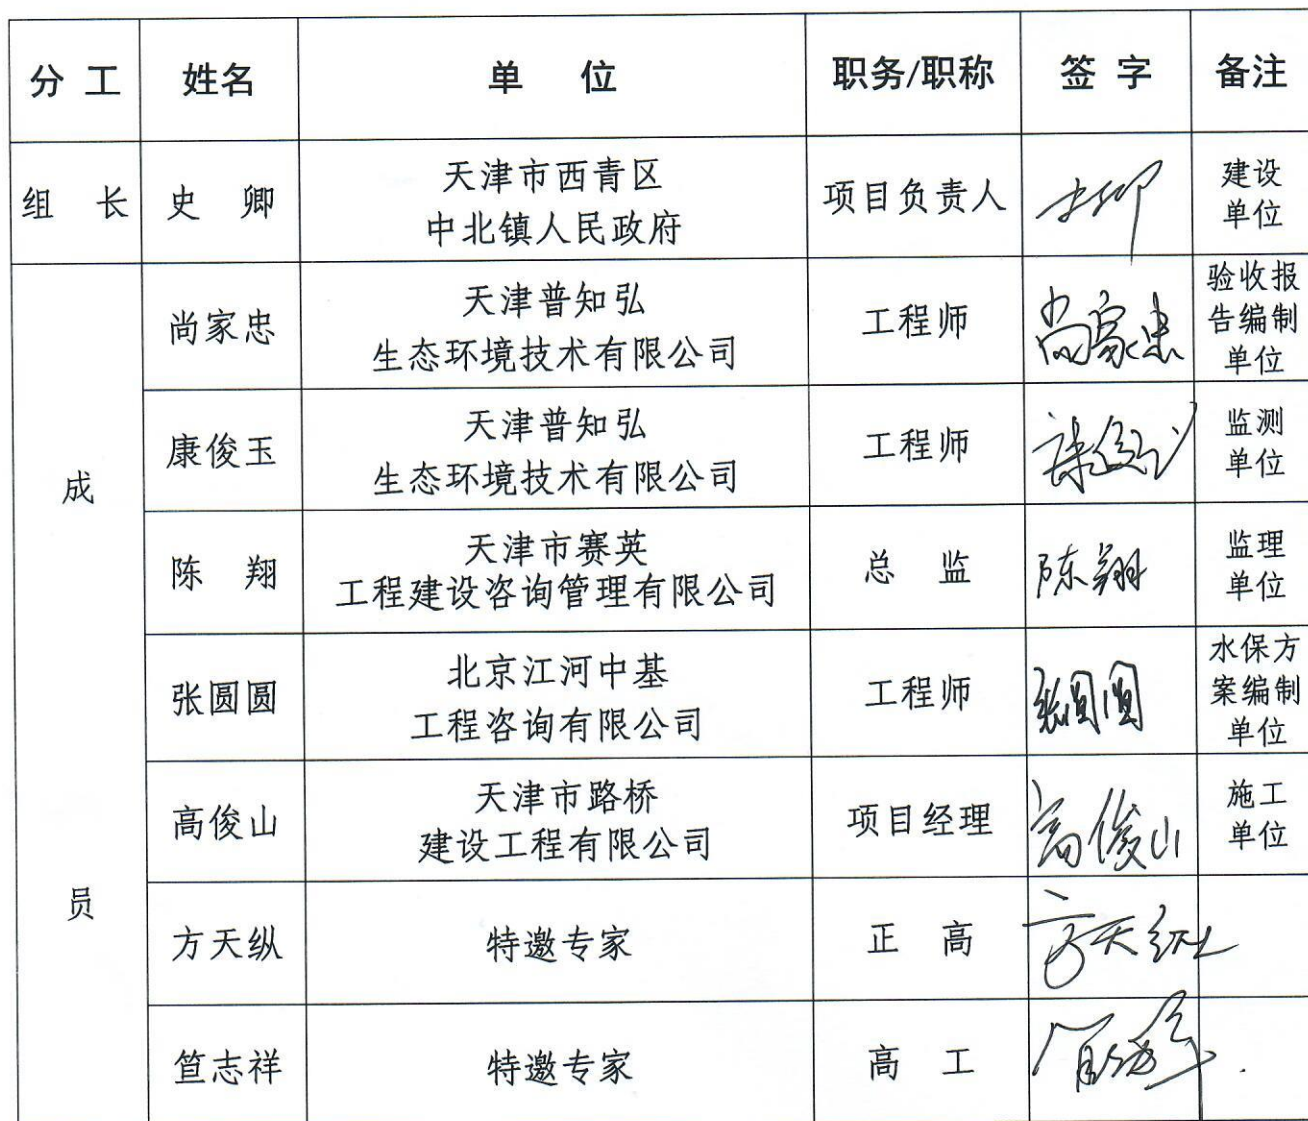 分 工 姓名 单 位 职务/职称 签 字 备注
组 长 史 卿 天津市西青区
中北镇人民政府 项目负责人 史卿 建设
单位
成
员
尚家忠 天津普知弘
生态环境技术有限公司 工程师 尚家忠 验收报
告编制
单位
康俊玉 天津普知弘
生态环境技术有限公司 工程师 康俊玉 监测
单位
陈 翔 天津市赛英
工程建设咨询管理有限公司 总 监 陈翔 监理
单位
张圆圆 北京江河中基
工程咨询有限公司 工程师 张圆圆 水保方
案编制
单位
高俊山 天津市路桥
建设工程有限公司 项目经理 高俊山 施工
单位
方天纵 特邀专家 正 高 方天纵
笪志祥 特邀专家 高 工